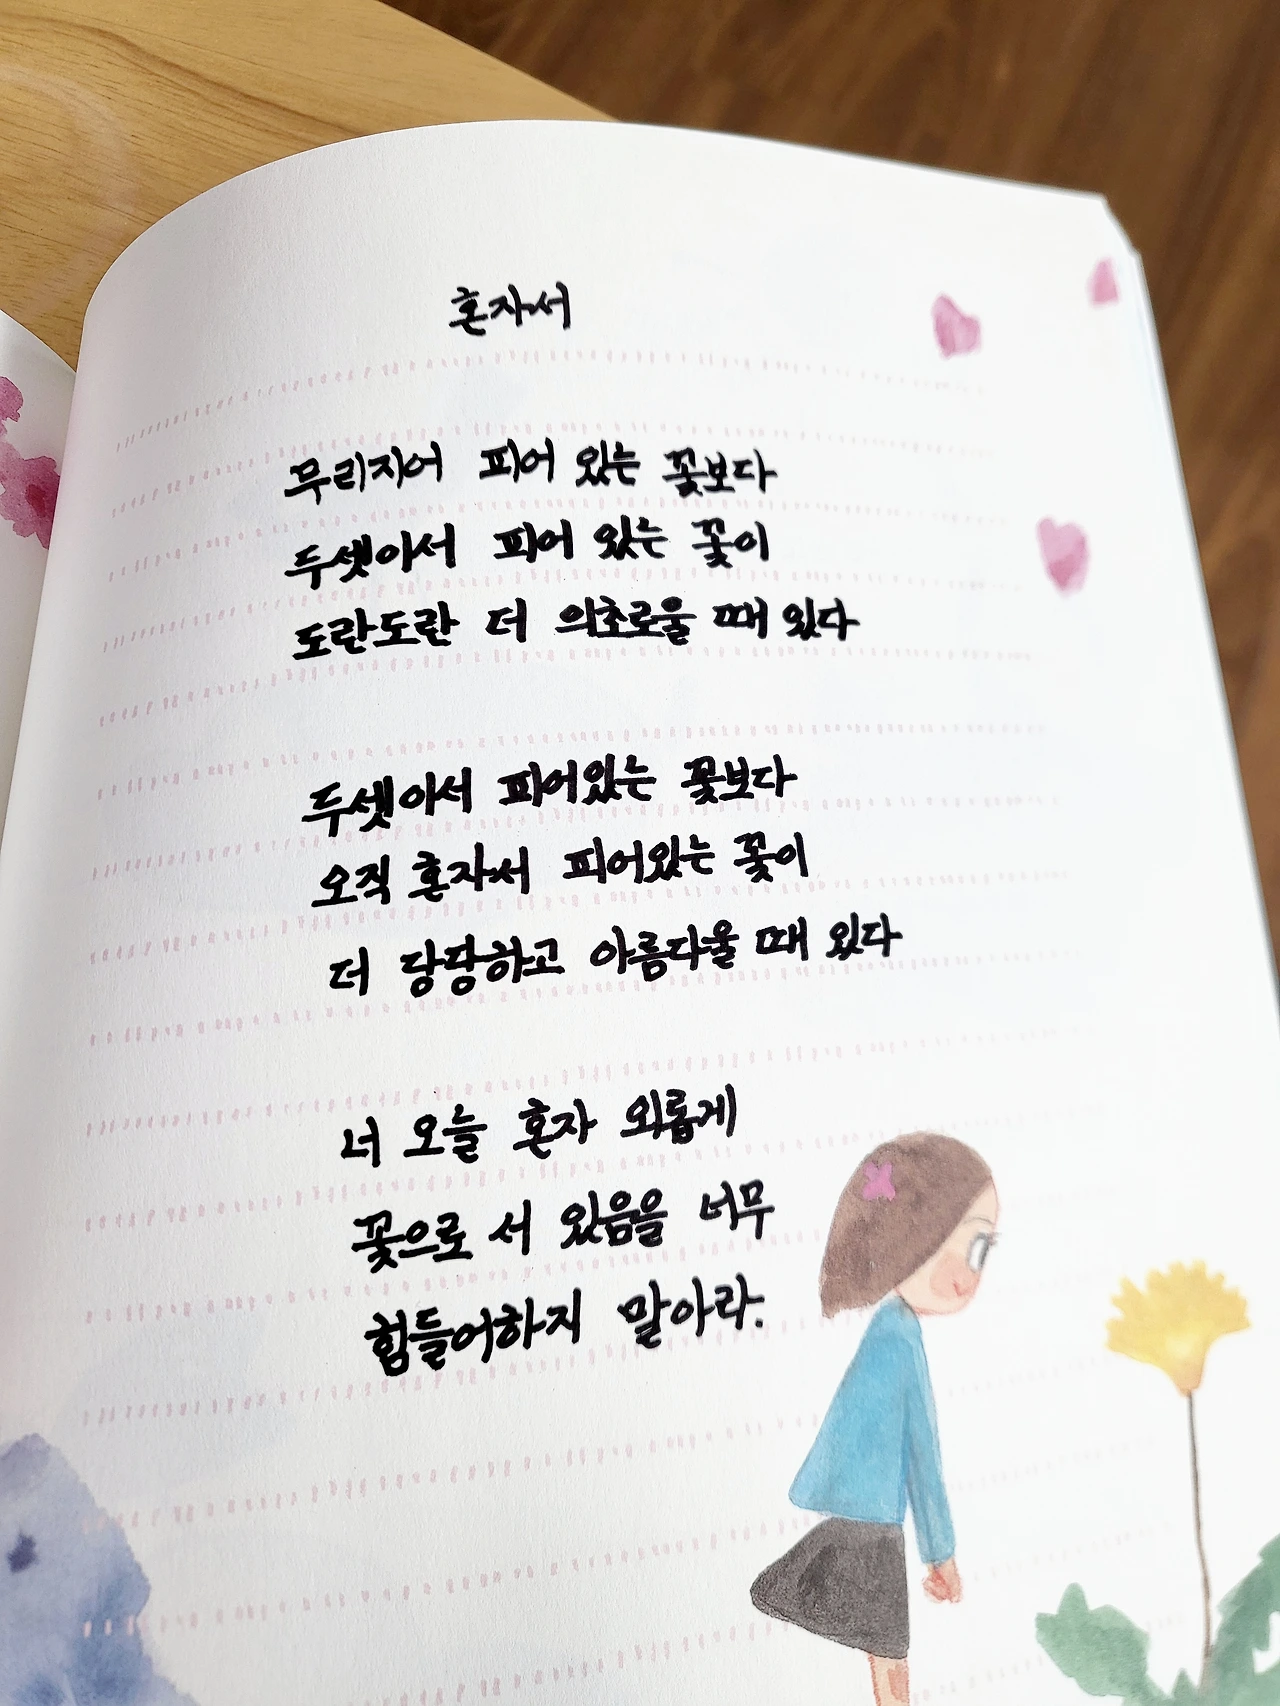 혼자서
무리지어 피어 있는 꽃보다
두셋이서 피어 있는 꽃이
도란도란 더 의초로울 때 있다
두셋이서 피어있는 꽃보다
오직 혼자서 피어있는 꽃이
더 당당하고 아름다울 때 있다
너 오늘 혼자 외롭게
꽃으로 서 있음을 너무
힘들어하지 말아라.